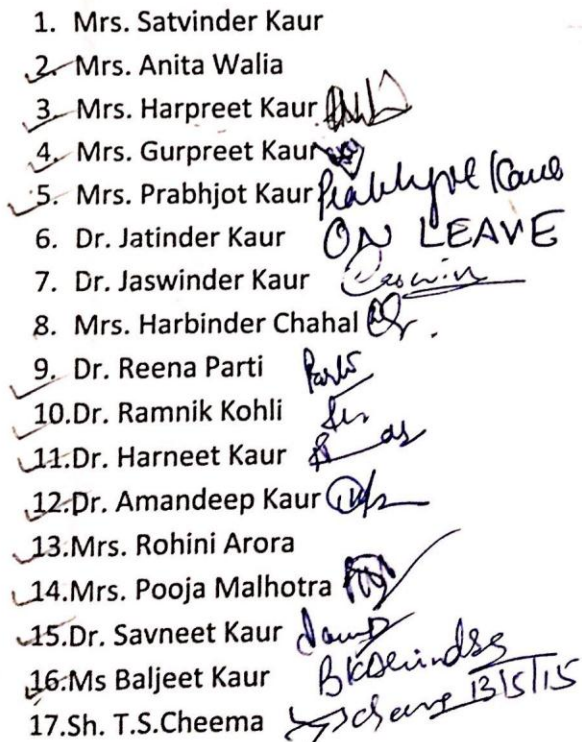 1. Mrs. Satvinder Kaur
2. Mrs. Anita Walia
3. Mrs. Harpreet Kaur
4. Mrs. Gurpreet Kaur
5. Mrs. Prabhjot Kaur Prabhjot Kaur
6. Dr. Jatinder Kaur ON LEAVE
7. Dr. Jaswinder Kaur
8. Mrs. Harbinder Chahal
9. Dr. Reena Parti Parti
10.Dr. Ramnik Kohli
11.Dr. Harneet Kaur
12.Dr. Amandeep Kaur
13.Mrs. Rohini Arora
14.Mrs. Pooja Malhotra
15.Dr. Savneet Kaur
16.Ms Baljeet Kaur
17.Sh. T.S.Cheema 13/5/15